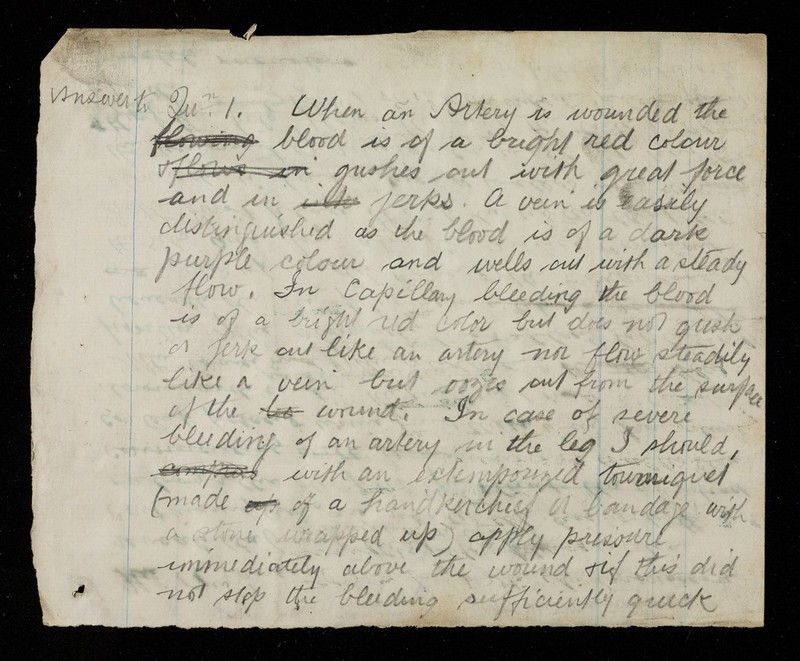 Answer to Qun. 1. When an Artery is wounded the
flowing blood is of a bright red colour
& flows in gushes out with great force
and in jerks. A vein is easily
distinguished as the blood is of a dark
purple colour and wells out with a steady
flow. In Capillary bleeding the blood
is of a bright red color but does not gush
or jerk out like an artery nor flow steadily
like a vein but oozes out from the surface
of the wound. In case of severe
bleeding of an artery in the leg I should,
compress with an extemporized tourniquet
(made up of a handkerchief or bandage with
a stone wrapped up) apply pressure
immediately above the wound & if this did
not stop the bleeding sufficiently quick